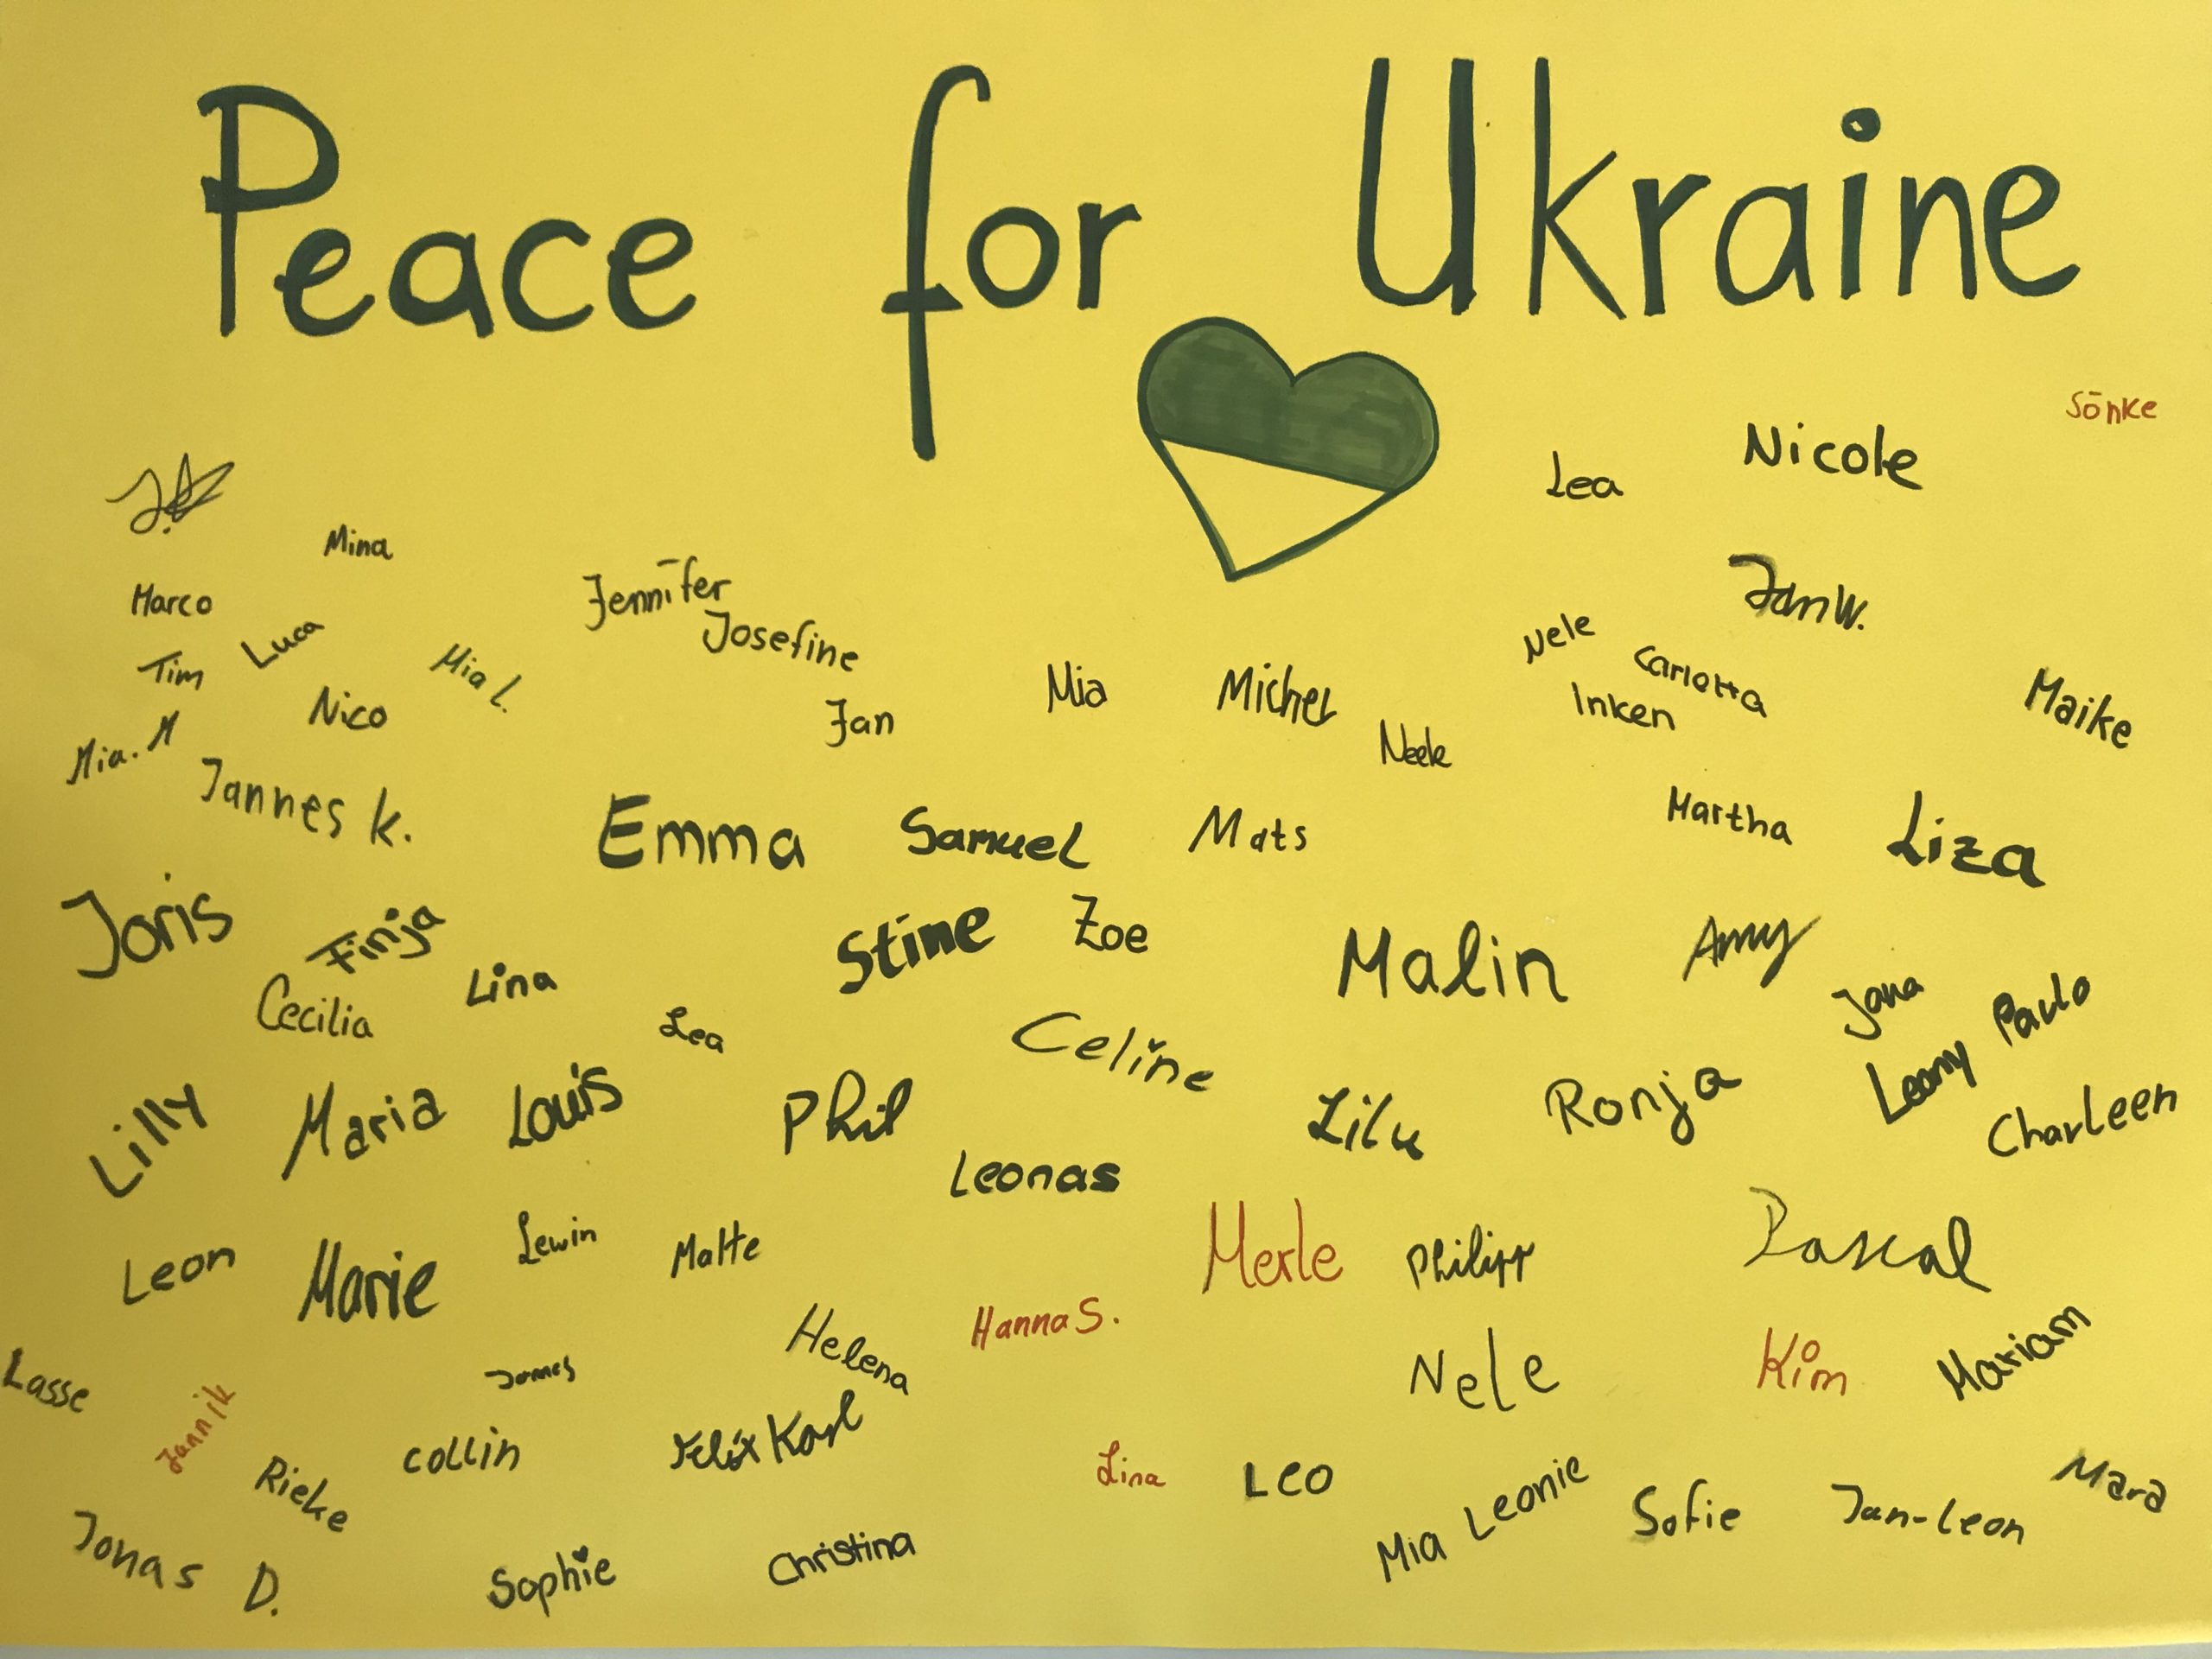 Peace for Ukraine
Sönke
Nicole
Lea
Mina
Jennifer
Jan W.
Marco
Luca
Josefine
Nele
Carlotta
Tim
Mia L.
Nico
Jan
Mia
Michel
Inken
Maike
Mia. M
Neele
Jannes K.
Emma
Samuel
Mats
Martha
Liza
Joris
Finja
Stine
Zoe
Malin
Amy
Cecilia
Lina
Lea
Celine
Jana
Paulo
Lilly
Maria
Louis
Phil
Lilu
Ronja
Leany
Charleen
Leonas
Leon
Marie
Lewin
Malte
Merle
Philipp
Pascal
Helena
Hanna S.
Lasse
Jannik
Jannes
Nele
Kim
Mariam
Rieke
Collin
Felix Karl
Lina
Leo
Mia Leonie
Sofie
Jan-Leon
Mara
Jonas D.
Sophie
Christina